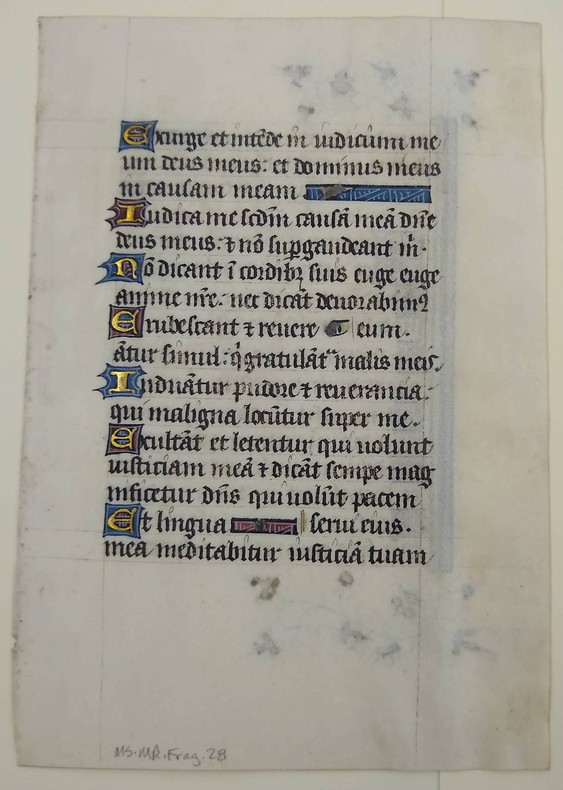 Exurge et intēde in iudicium me
um deus meus: et dominus meus
in causam meam
Iudica me scdm̄ causā meā dn̄e
deus meus: ⁊ nō supgaudeant m̄.
Nō dicant ī cordibꝫ suis euge euge
anime nr̄e. nec dicāt deuorabimꝰ
Erubescant ⁊ reuere eum.
ātur simul: q̄ gratulāt malis meis.
Induātur pudore ⁊ reuerancia.
qui maligna locūtur super me.
Excultāt et letentur qui uolunt
iusticiam meā ⁊ dicāt sempe mag
nificetur dn̄s qui uolūt pacem
Et lingua serui eius.
mea meditabitur iusticiā tuam
MS.MR.Frag.28